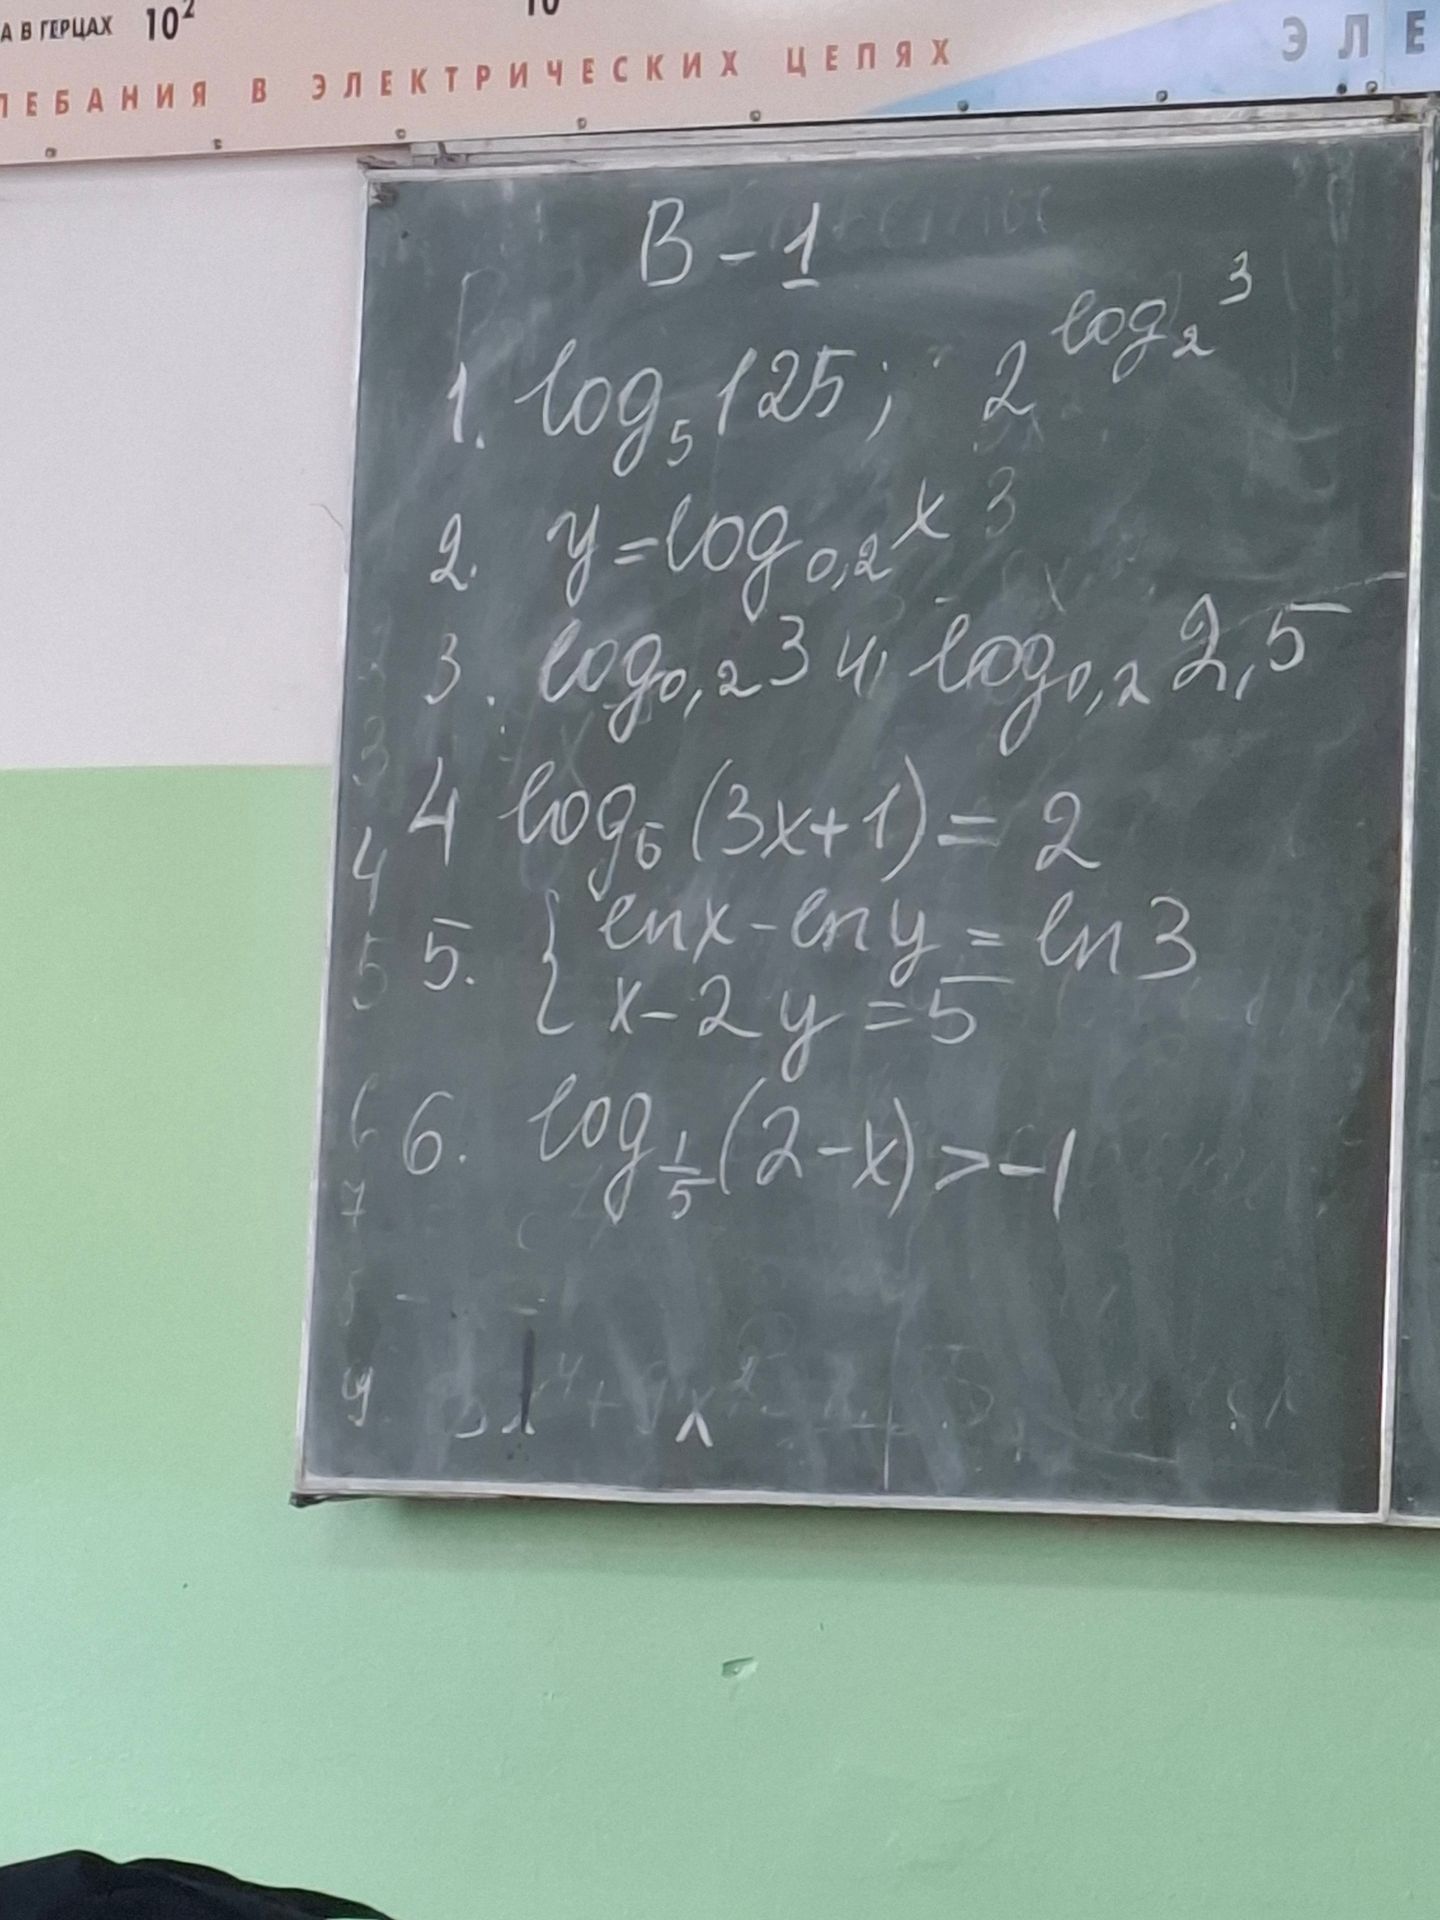 А В ГЕРЦАХ 10² 10
ЛЕБАНИЯ В ЭЛЕКТРИЧЕСКИХ ЦЕПЯХ
ЭЛЕ
В - 1
1. log₅ 125; 2^(log₂ 3)
2. y = log₀,₂ x
3. log₀,₂ 3 и log₀,₂ 2,5
4 log₅ (3x+1) = 2
5. { ln x - ln y = ln 3
x - 2y = 5
6. log_(1/5) (2-x) > -1